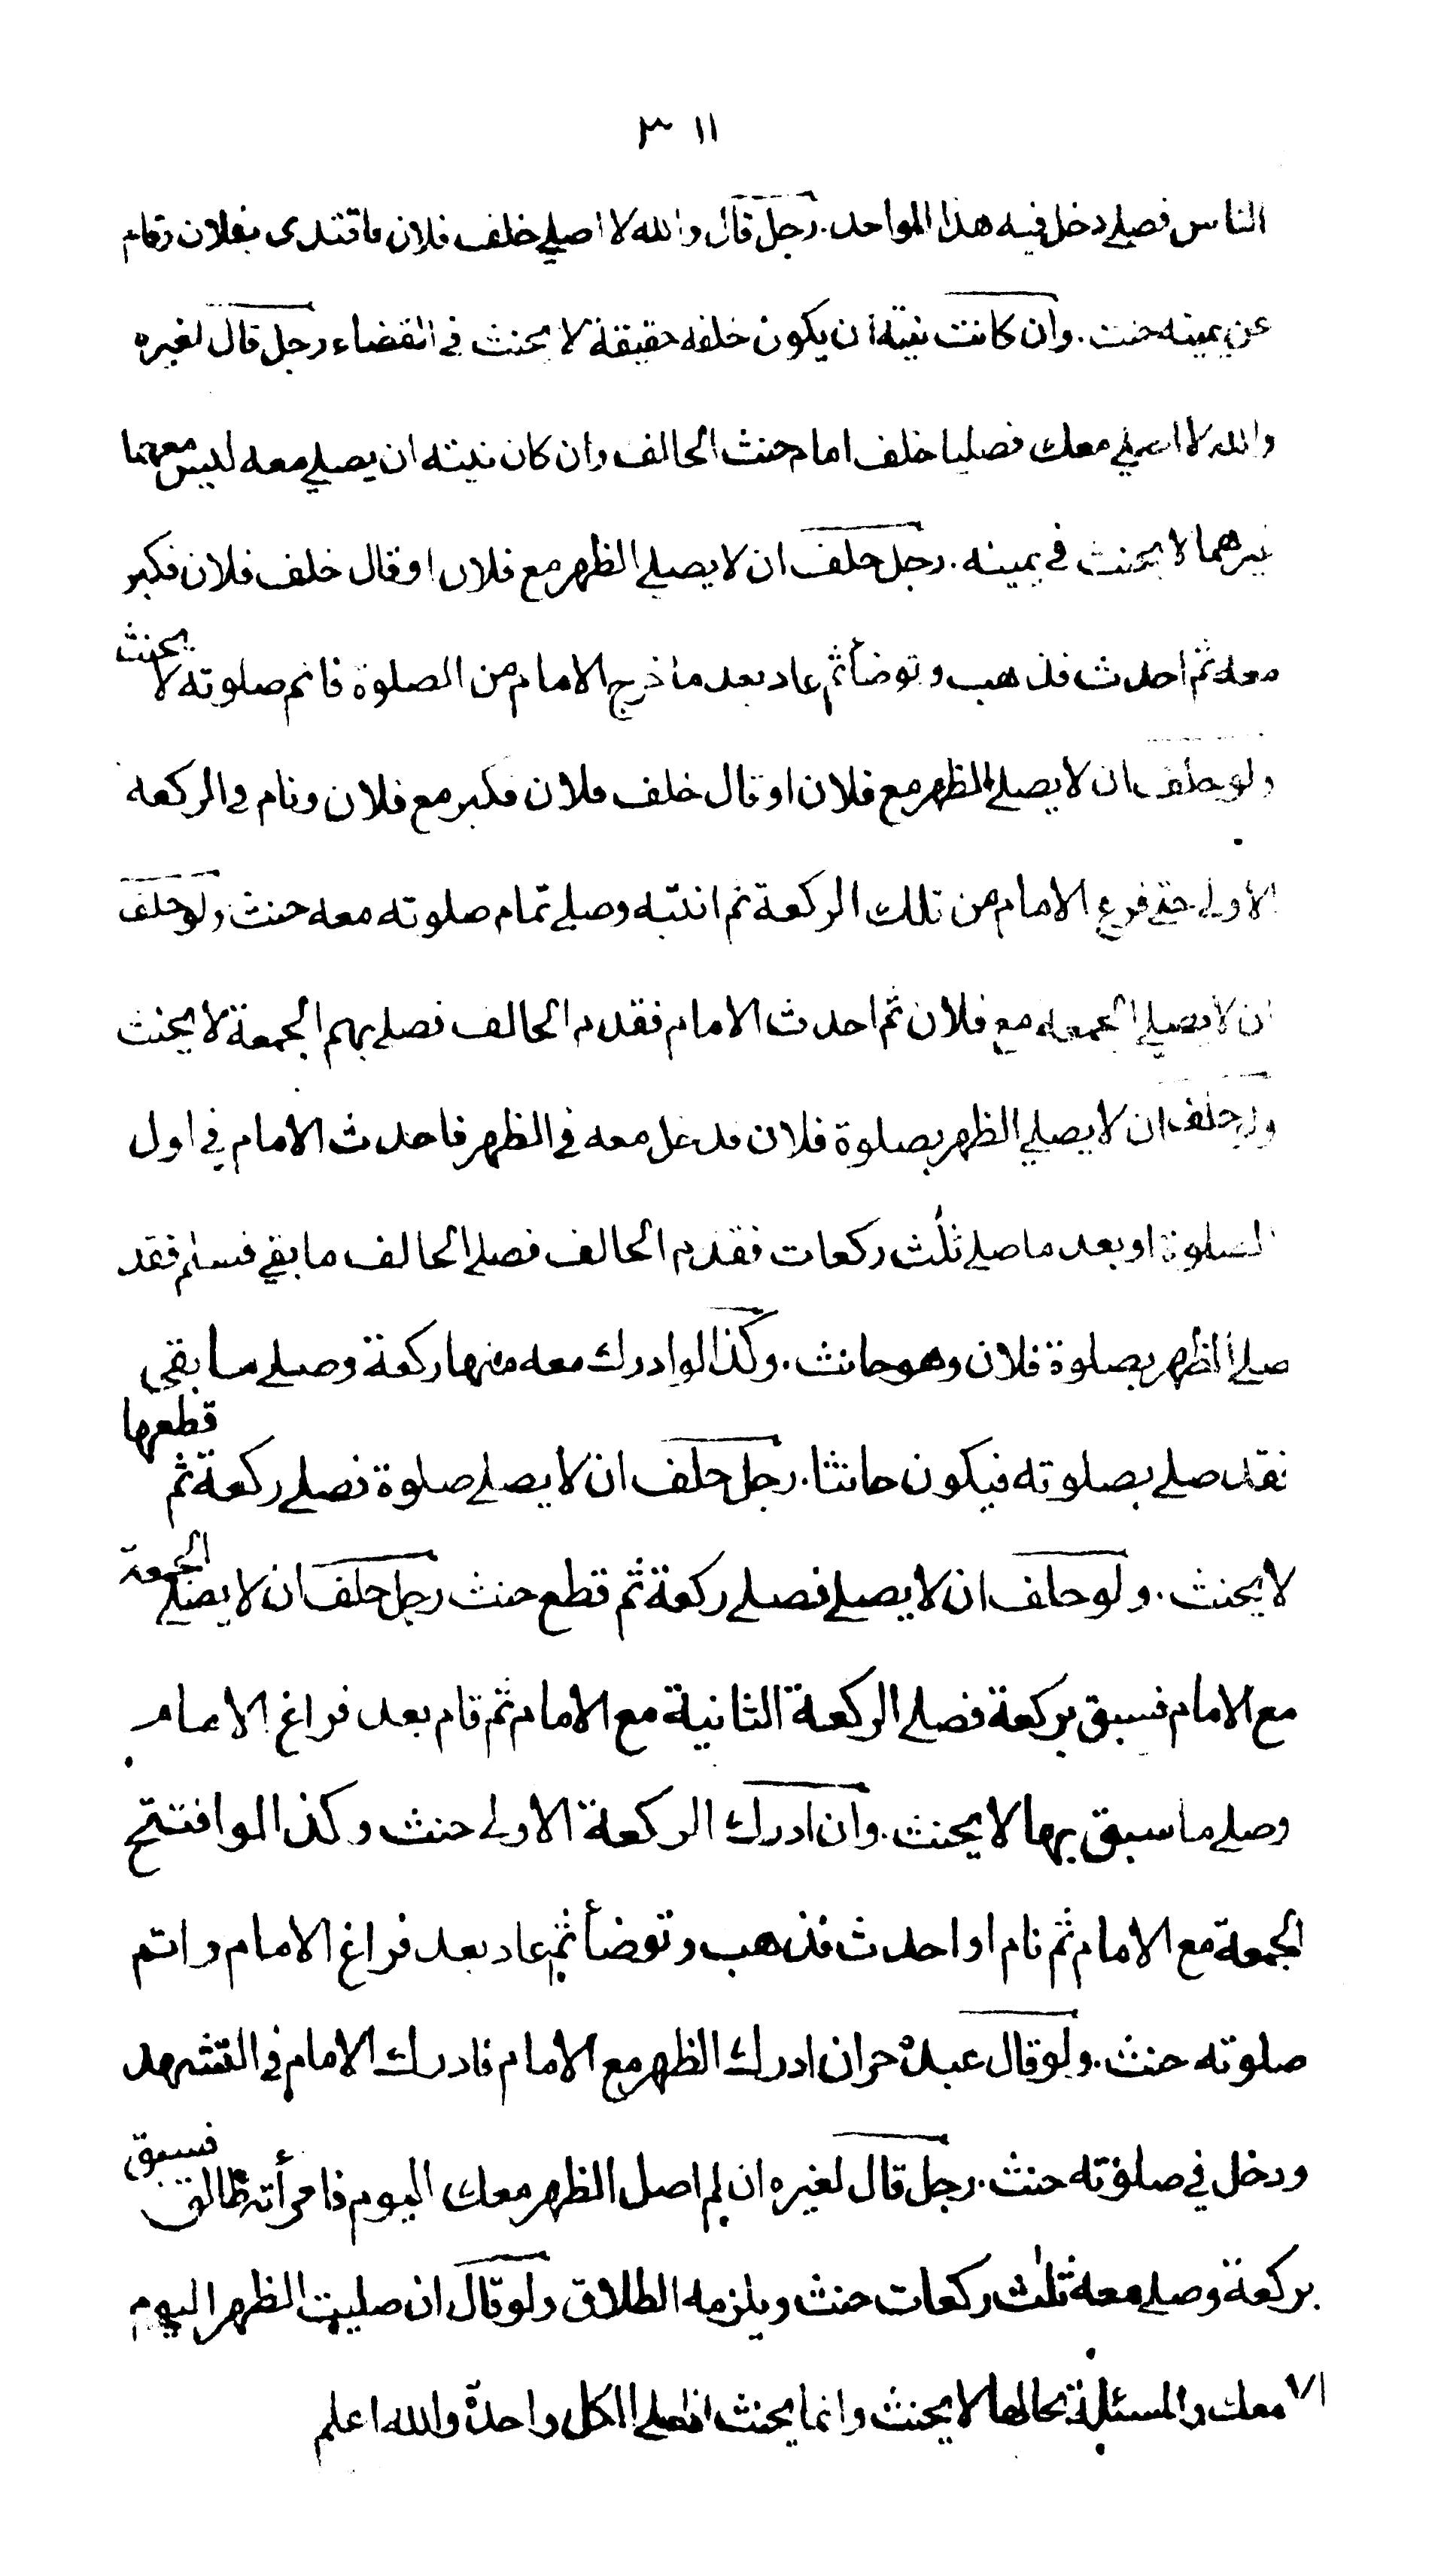 ٣١١
الناس فصلى دخل فيه هذا الواحد. رجل قال والله لا اصلي خلف فلان فاقتدى بفلان وقام
عن يمينه حنث. وان كانت نيته ان يكون خلفه حقيقة لا يحنث في القضاء رجل قال لغيره
والله لا اصلي معك فصليا خلف امام حنث الحالف وان كان نيته ان يصلي معه ليس معهما
غيرهما لا يحنث في يمينه. رجل حلف ان لا يصلى الظهر مع فلان او قال خلف فلان فكبر
معه ثم احدث فذهب وتوضأ ثم عاد بعد ما خرج الامام من الصلوة فاتم صلوته لا يحنث
ولو حلف ان لا يصلى الظهر مع فلان او قال خلف فلان فكبر مع فلان ونام في الركعة
الاولى حتى فرغ الامام من تلك الركعة ثم انتبه وصلى تمام صلوته معه حنث ولو حلف
ان لا يصلي الجمعة مع فلان ثم احدث الامام فقدم الحالف فصلى بهم الجمعة لا يحنث
ولو حلف ان لا يصلي الظهر بصلوة فلان فدخل معه في الظهر فاحدث الامام في اول
الصلوة او بعد ما صلى ثلٰث ركعات فقدم الحالف فصلى الحالف ما بقي فسلم فقد
صلى الظهر بصلوة فلان وهو حانث. وكذا لو ادرك معه منها ركعة وصلى ما بقي
فقد صلى بصلوته فيكون حانثا. رجل حلف ان لا يصلى صلوة فصلى ركعة ثم قطعها
لا يحنث. ولو حلف ان لا يصلى فصلى ركعة ثم قطع حنث رجل حلف ان لا يصلى الجمعة
مع الامام فسبق بركعة فصلى الركعة الثانية مع الامام ثم قام بعد فراغ الامام
وصلى ما سبق بها لا يحنث. وان ادرك الركعة الاولى حنث وكذا لو افتتح
الجمعة مع الامام ثم نام او احدث فذهب وتوضأ ثم عاد بعد فراغ الامام واتم
صلوته حنث. ولو قال عبده حر ان ادرك الظهر مع الامام فادرك الامام في التشهد
ودخل في صلوته حنث. رجل قال لغيره ان لم اصل الظهر معك اليوم فامرأته طالق فسبق
بركعة وصلى معه ثلٰث ركعات حنث ويلزمه الطلاق ولو قال ان صليت الظهر اليوم
الا معك والمسئلة بحالها لا يحنث وانما يحنث اذا صلى الكل واحدة والله اعلم